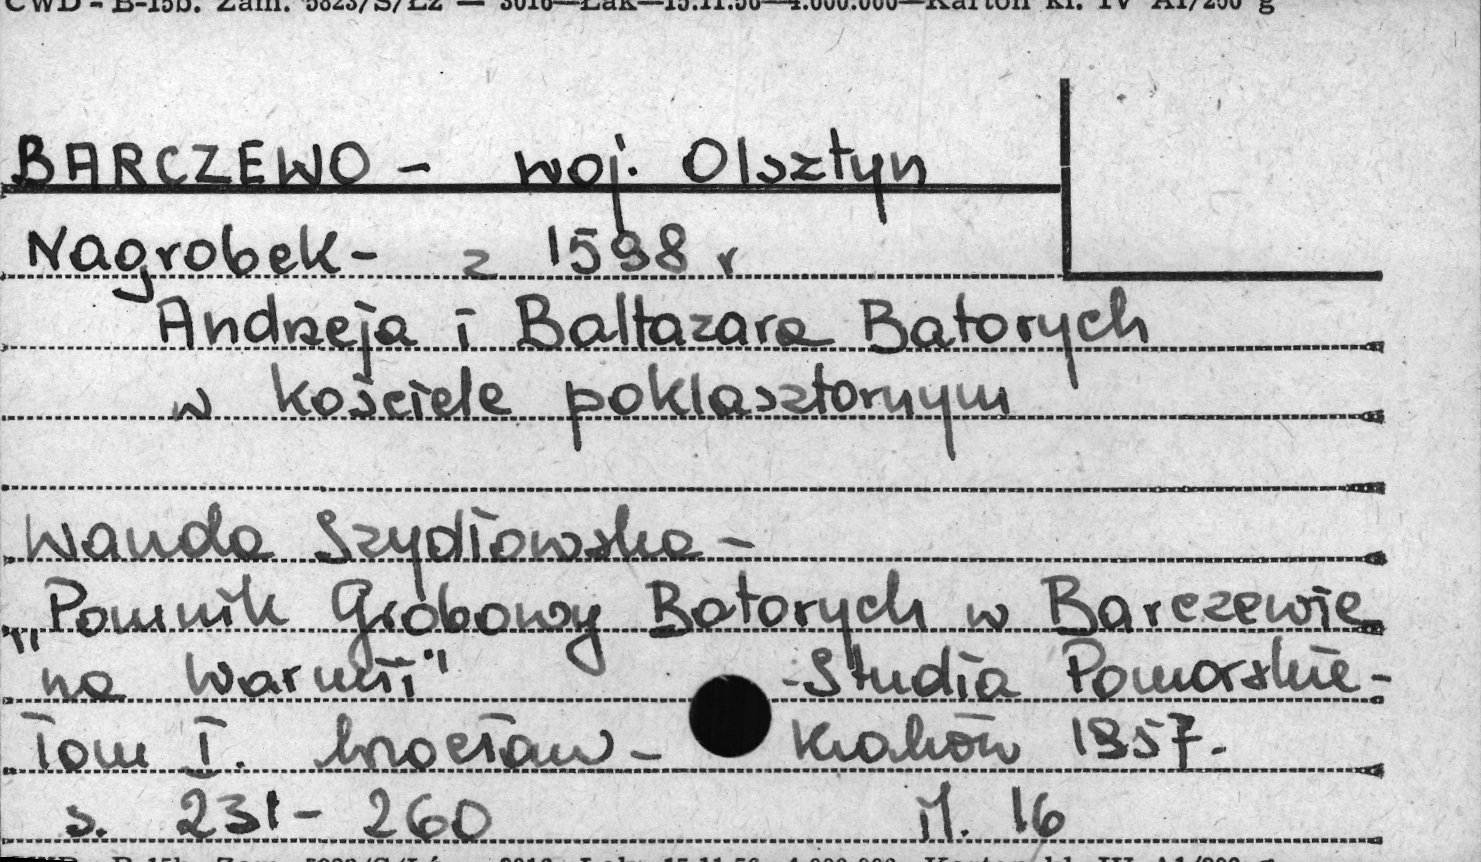 CWD - B-15b. Zam. 5823/S/Łz — 3016—Łak—15.11.56—4.000.000—Karton kl. IV A1/200 g
BARCZEWO - woj. Olsztyn
Nagrobek - z 1598 r
Andrzeja i Baltazara Batorych
w kościele poklasztornym
Wanda Szydłowska -
"Pomnik Grobowy Batorych w Barczewie
na Warmii" - Studia Pomorskie -
Tom I. Wrocław - Kraków 1957.
s. 231 - 260 il. 16